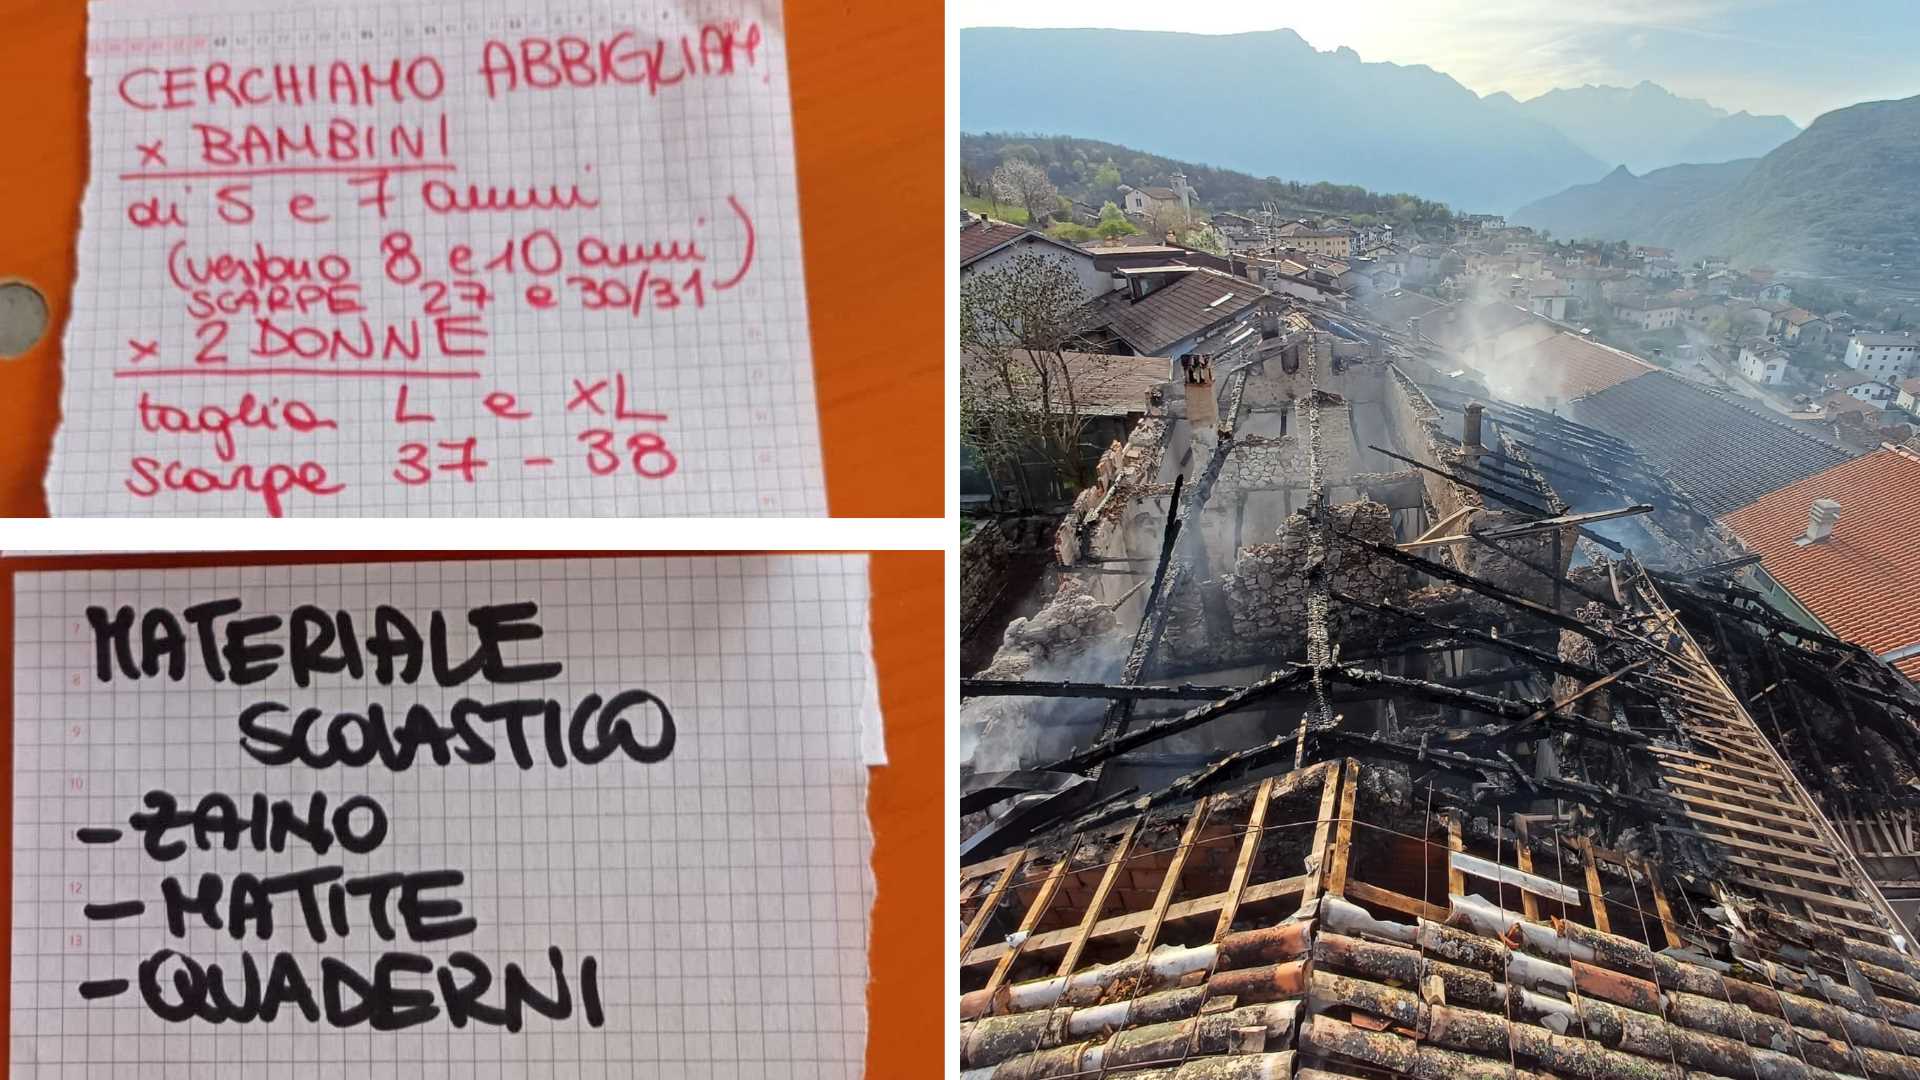 CERCHIAMO ABBIGLIAM.
x BAMBINI
di 5 e 7 anni
(vestono 8 e 10 anni)
SCARPE 27 e 30/31
x 2 DONNE
taglia L e XL
scarpe 37 - 38
MATERIALE
SCOLASTICO
- ZAINO
- MATITE
- QUADERNI